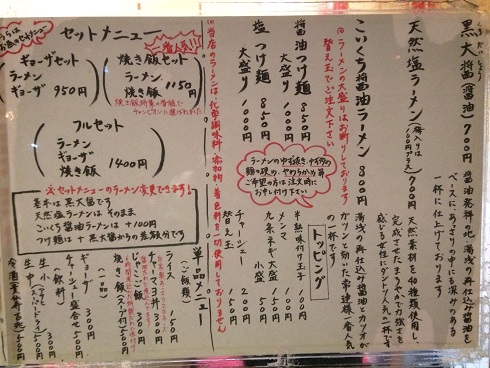 黒大醤(醤油) 700円
醤油発祥の地 湯浅の再仕込み醤油を
ベースに、あっさりの中にも深みのある
一杯に仕上げております
天然塩ラーメン 700円
天然素材を40種類使用し、
完成させたまろやかで力強さを
感じる女性にダントツ人気の一杯です
こいくち醤油ラーメン 800円
湯浅の再仕込み醤油とカツオが
ガツンと効いた常連様一番人気
の一杯です
◎ラーメンの大盛りはお断りしております
替え玉でご注文下さい
醤油つけ麺 850円
大盛り 1000円
塩つけ麺 850円
大盛り 1000円
ラーメンのゆず抜き、ネギ多め
麺の硬め、やわらかめ等
ご希望の方は注文時に
お申し付け下さい
トッピング
半熟味付け玉子 100円
メンマ 100円
九条ネギ 小盛 100円
大盛 150円
チャーシュー 200円
替え玉 150円
※当店のラーメンは、化学調味料・添加物・着色料を一切使用しておりません
うらは
お昼のセットメニュー
セットメニュー
一番人気!!
ギョーザセット
ラーメン
ギョーザ
950円
焼き飯セット
ラーメン
焼き飯
1150円
焼き飯特集の番組で
チャンピオンに選ばれました
フルセット
ラーメン
ギョーザ
焼き飯
1400円
※セットメニューのラーメン変更できます!
基本は黒大醤です
天然塩ラーメンはそのまま
こいくち醤油ラーメンは +100円
つけ麺は + 黒大醤からの差額分です
単品メニュー
(ご飯類)
ライス 150円
チャーマヨ丼 300円
じゃこご飯 300円
焼き飯(スープ付) 500円
(一品)
ギョーザ 300円
チャーシュー盛合せ 500円
(飲料)
生小 300円
生中 500円